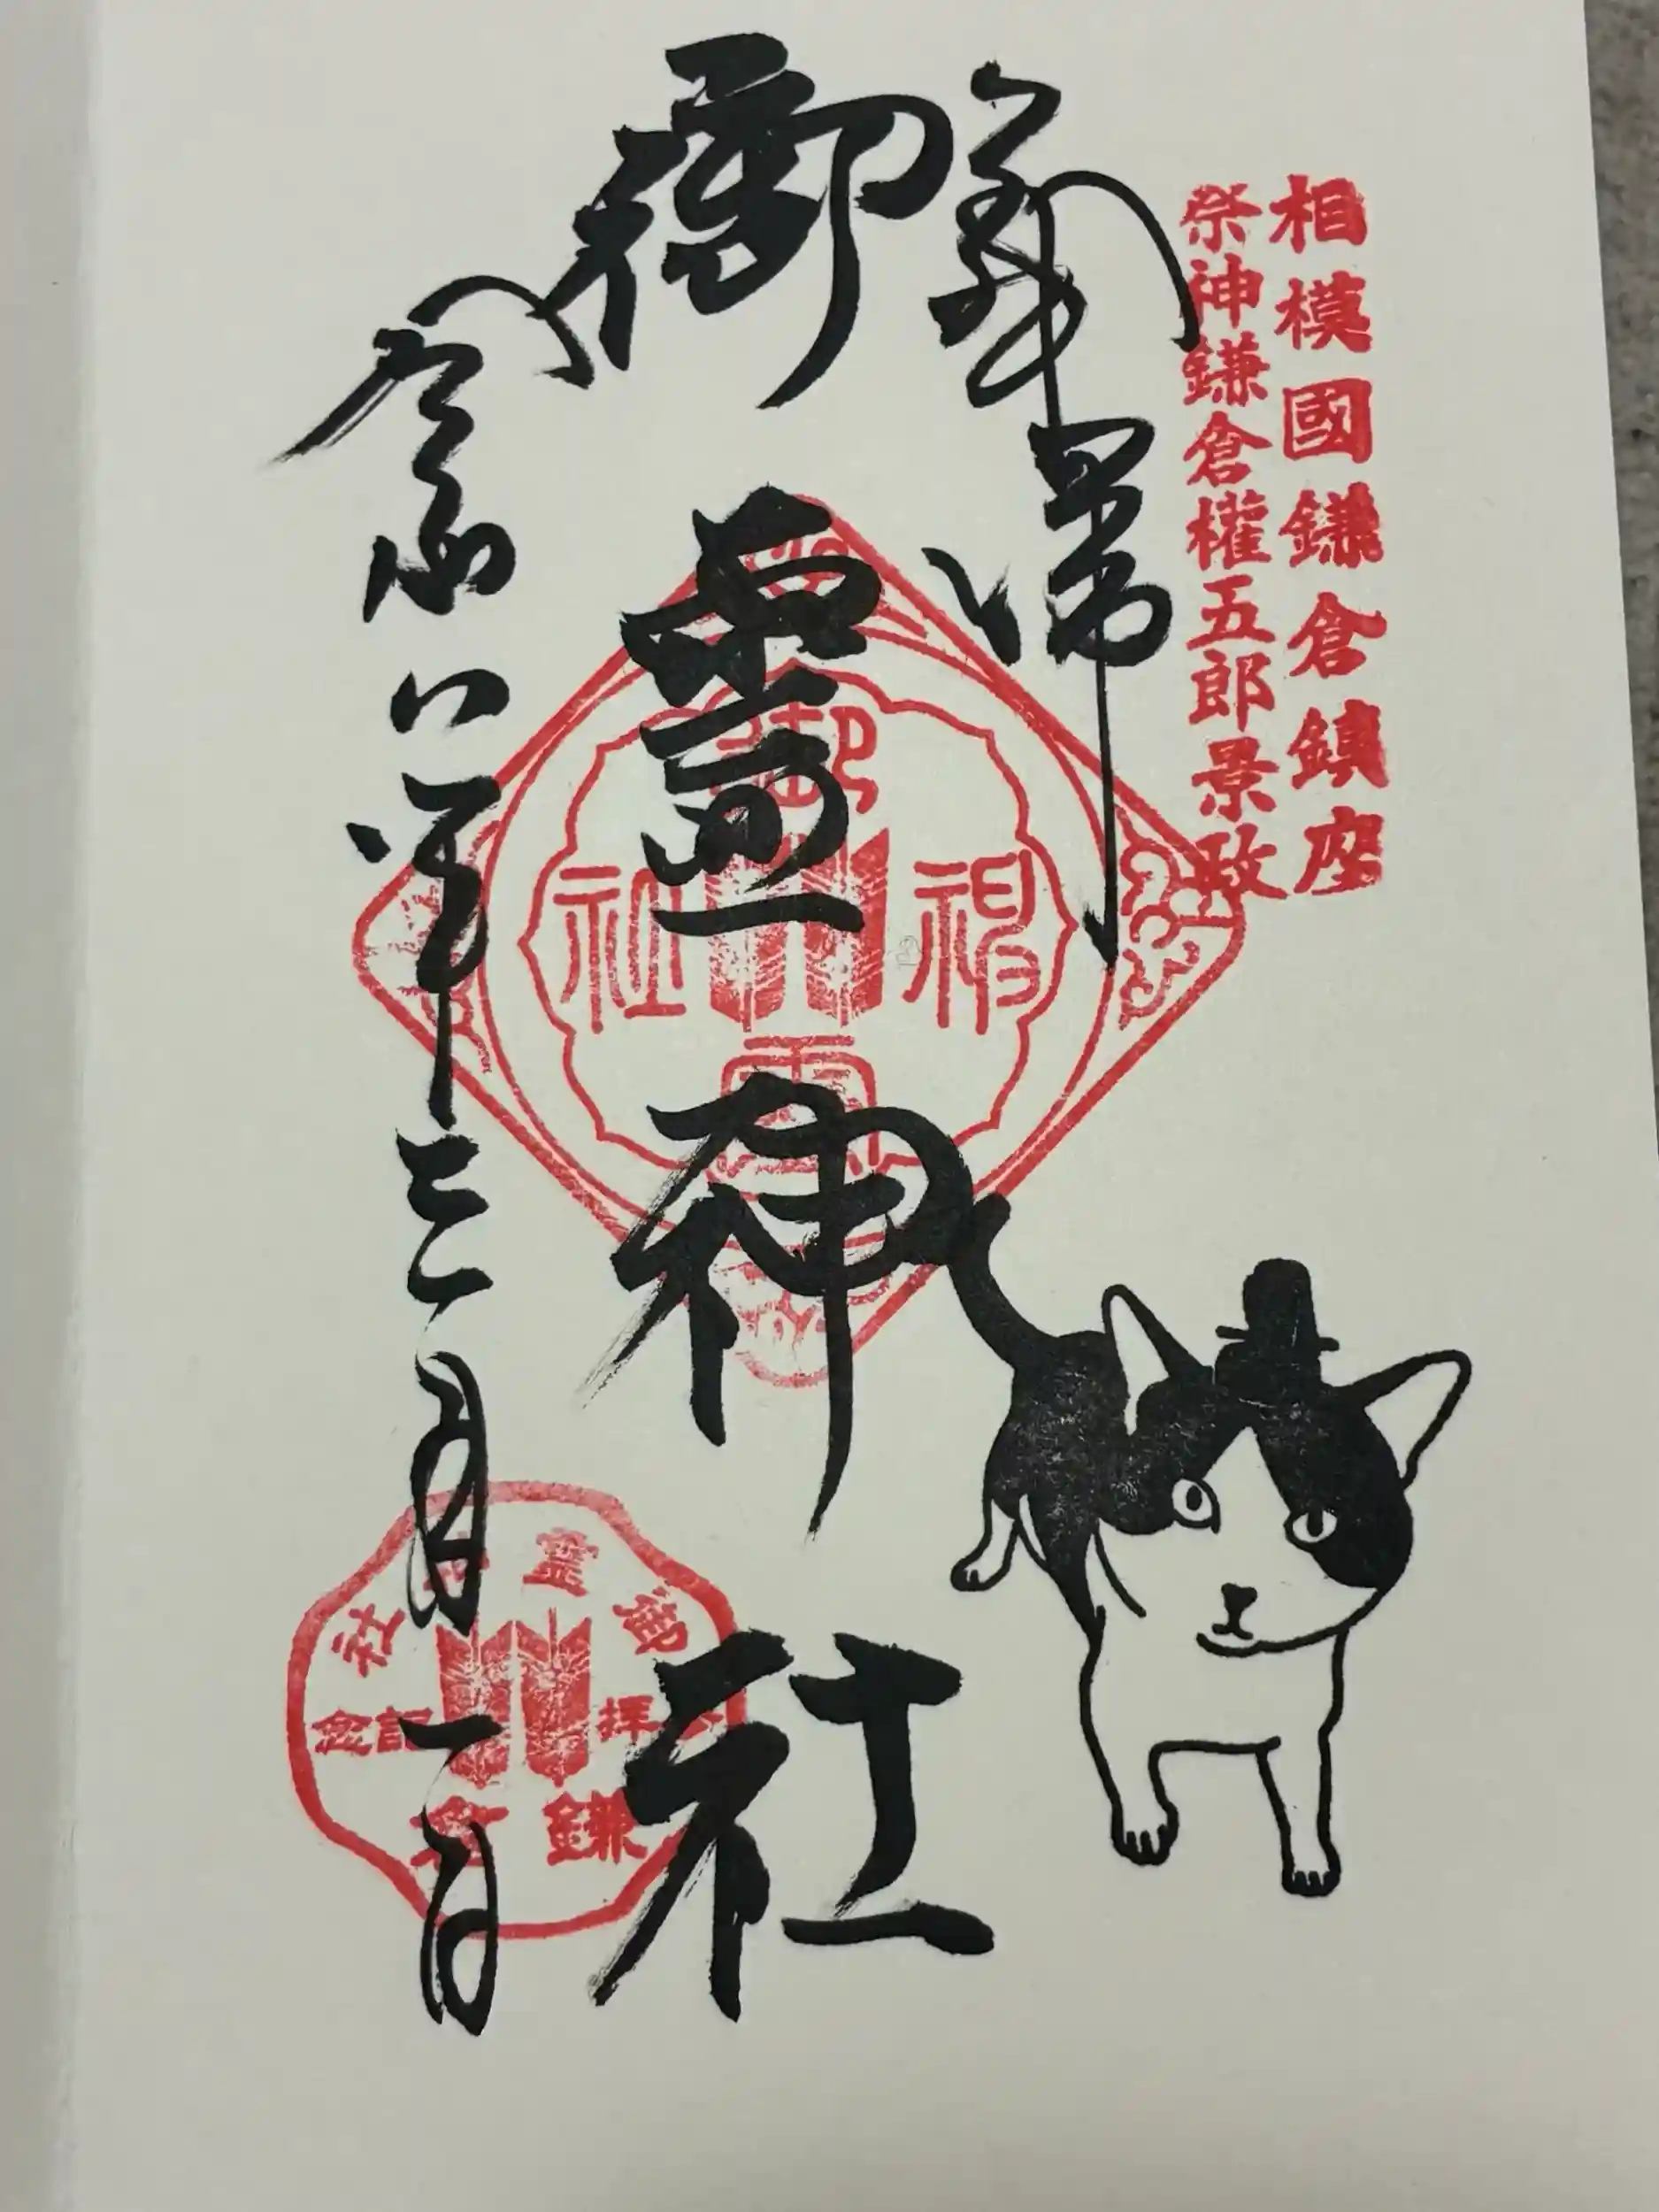 相模國鎌倉鎮座
祭神鎌倉權五郎景政
奉拝
御霊神社
令和八年三月一日
御霊神社
御霊神社
参拝記念
鎌倉